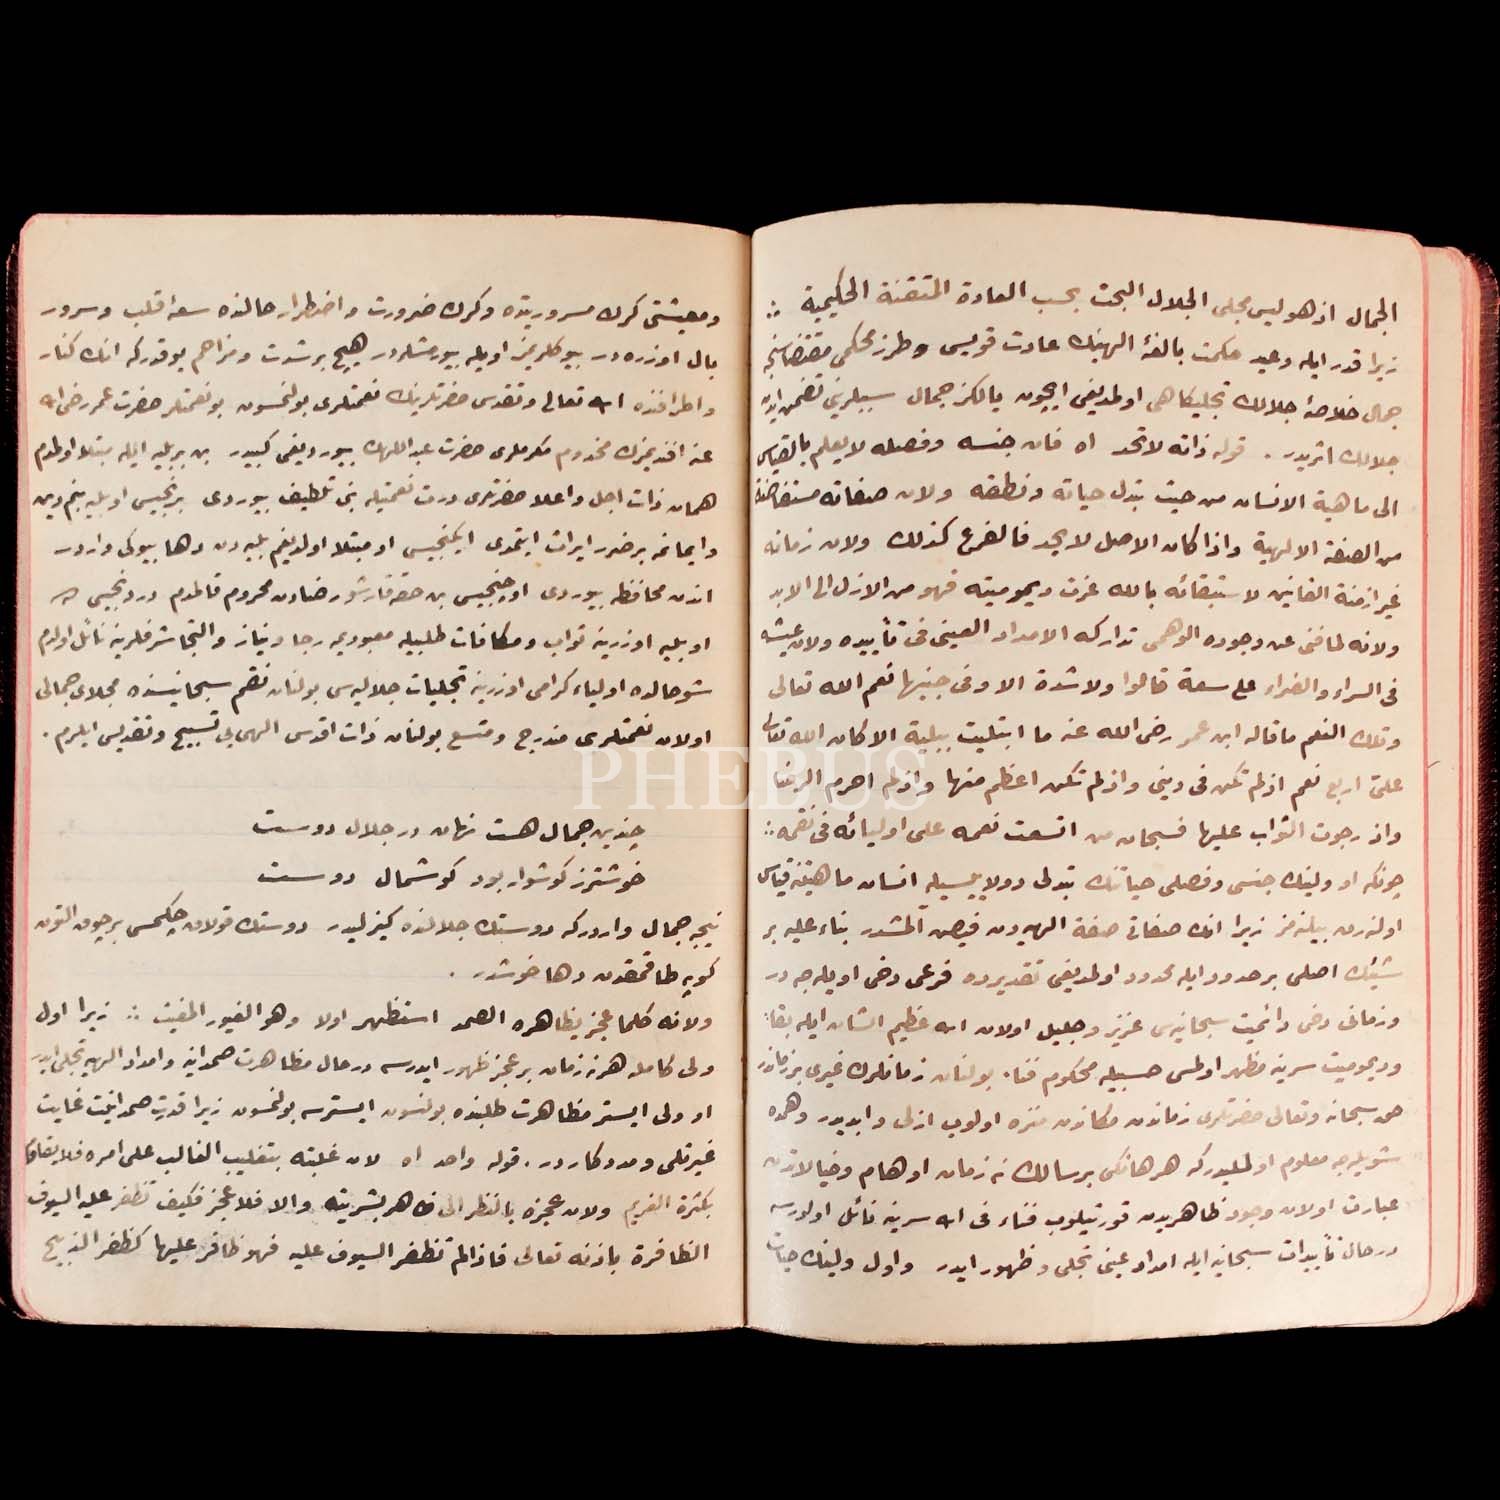 الجمال اذ هو ليس مجلى الجلال البحت بحسب العادة المتقنة الحكيمية ∴
زيرا قدر ايله وعيد حكمت بالغهٔ الهينك عادت قويمى وطرز محكمى مقتضاسنجه
جمال خلاصهٔ جلالك تجليكاهى اولمديغى ايچون يالكز جمال سبيلرينى تضمن ايدن
جلالك اثريدر . قوله ذاته لا تحد اه فان جنسه وفصله لا يعلم بالقياس
الى ماهية الانسان من حيث تبدل حياته ونطقه ولان صفاته مستفاضة
من الصفة الالهية واذا كان الاصل لا يحد فالفرع كذلك ولان زمانه
غير ازمنة الفانين لاستبقائه بالله عزت ديموميته فهو من الازل الى الابد
ولانه لما فنى عن وجوده الوهمى تداركه الامداد العينى فى تأييده ولان عيشه
فى السراء والضراء على سعة قالوا ولا شدة الا وفى جنبها نعم الله تعالى
وتلك النعم ما قاله ابن عمر رضى الله عنه ما ابتليت ببلية الا كان الله تعالى
على اربع نعم اذ لم تكن فى دينى واذ لم تكن اعظم منها واذ لم احرم الرضا
واذ رجوت الثواب عليها فسبحان من اتسعت نعمه على اوليائه فى نقمه ∴
چونكه او ولينك جنسى وفصلى حياتنك تبدلى دولاييسيله انسان ماهيتنه قياس
اولنه رق بيلنمز زيرا انك صفاتى صفة الهيه دن فيض آلمشدر بناء عليه بر
شيئك اصلى بر حدود ايله محدود اولمديغى تقديرده فرعى دخى اويله جه در
وزمانى دخى دائميت سبحانيه سى عزيز وجليل اولان الله عظيم الشان ايله بقا
وديموميت سرينه مظهر اولمسى حسبيله محكوم فنا بولنان زمانلرك غيرى بر زماندر
حق سبحانه وتعالى حضرتلرى زماندن مكاندن منزه اولوب ازلى وابديدر وهمده
شويله جه معلوم اولمليدركه هر هانكى بر سالك نه زمان اوهام وخيالاتدن
عبارت اولان وجود ظاهريدن قورتيلوب فناء فى الله سرينه نائل اولورسه
درحال تأييدات سبحانيه ايله امداد عينى تجلى وظهور ايدر واول ولينك حيات
ومعيشتى كرك مسروريتده وكرك ضرورت واضطرار حالنده سعهٔ قلب وسرور
بال اوزره در بيوكلريمز اويله بيورمشلردر هيچ بر شدت ومزاحم يوقدركه انك كنار
واطرافنده الله تعالى وتقدس حضرتلرينك نعمتلرى بولنمسون بو نعمتلر حضرت عمر رضى الله
عنه افنديمزك مخدوم مكرملرى حضرت عبد اللهك بيورديغى كبيدر بن بر بليه ايله مبتلا اولمدم
همان ذات اجل واعلا حضرتلرى درت نعمتيله بنى تلطيف بيوردى برنجيسى او بليه بنم دين
وايمانمه بر ضرر ايراث ايتمدى ايكنجيسى او مبتلا اولديغم بليه دن دها بيوكى واردر
اندن محافظه بيوردى اوچنجيسى بن حقه قارشو رضادن محروم قالمدم دردنجيسى
او بليه اوزرينه ثواب ومكافات طلبيله معبوديمه رجا ونياز والتجا شرفلرينه نائل اولدم
شو حالده اولياء كرامى اوزرينه تجليات جلاليه سى بولنان نقم سبحانيسنده مجلاى جمالى
اولان نعمتلرى مندرج ومتسع بولنان ذات اقدس الهى يى تسبيح وتقديس ايلرم .
چندين جمال هست نهان در جلال دوست
خوشتر ز كوشوار بود كوشمال دوست
نيجه جمال واردركه دوستك جلالنده كيزليدر دوستك قولاق چكمسى بر چوق التون
كوپه طاقمقدن دها خوشدر .
ولانه كلما عجز يظاهره الصمد استظهر اولا وهو الغيور المغيث ∴ زيرا اول
ولى كامله هر نه زمان بر عجز ظهور ايدرسه درحال مظاهرت صمدانيه وامداد الهيه تجلى ايدر
او ولى ايستر مظاهرت طلبنده بولنسون ايسترسه بولنمسون زيرا قدرت صمدانيت غايت
غيرتلى ومددكاردر . قوله واحد اه لان غلبته بتغليب الغالب على امره فلا يقاوم
بكثرة الغريم ولان عجزه بالنظر الى ظاهر بشريته والا فلا عجز فكيف تظفر عليه السيوف
الظافرة باذنه تعالى فاذا لم تظفر السيوف عليه فهو ظافر عليها كظفر الذبيح
PHEBUS